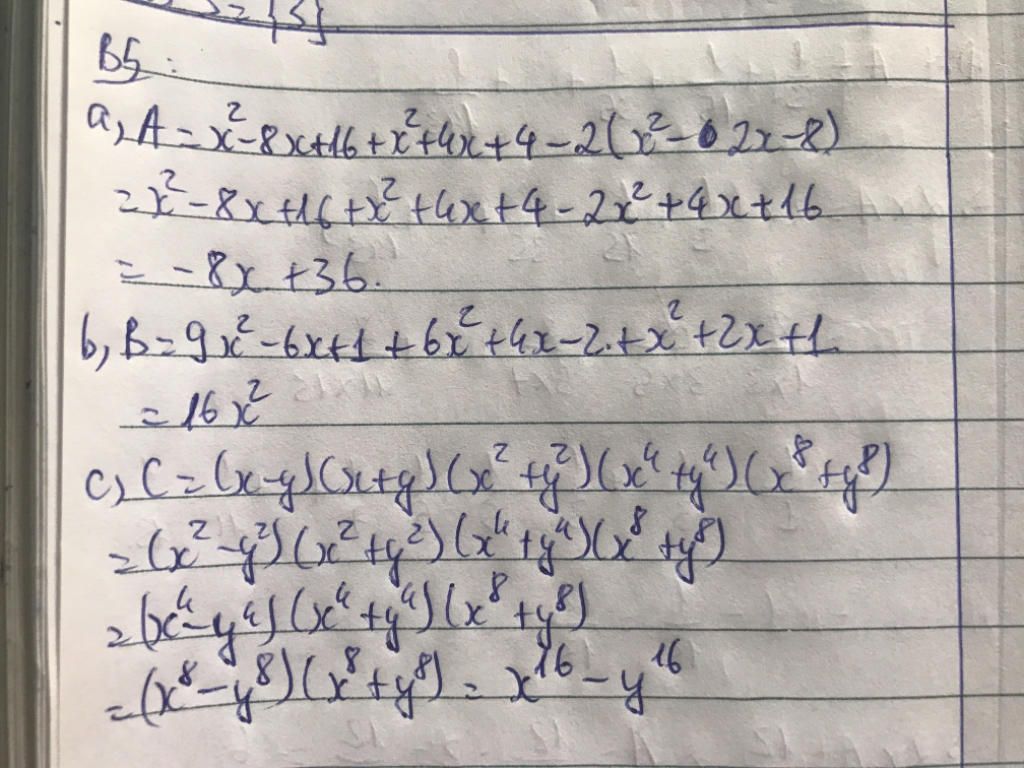 = {3}
B5:
a, A = x² - 8x + 16 + x² + 4x + 4 - 2(x² - 2x - 8)
= x² - 8x + 16 + x² + 4x + 4 - 2x² + 4x + 16
= -8x + 36.
b, B = 9x² - 6x + 1 + 6x² + 4x - 2 + x² + 2x + 1
= 16x²
c, C = (x-y)(x+y)(x² + y²)(x⁴ + y⁴)(x⁸ + y⁸)
= (x² - y²)(x² + y²)(x⁴ + y⁴)(x⁸ + y⁸)
= (x⁴ - y⁴)(x⁴ + y⁴)(x⁸ + y⁸)
= (x⁸ - y⁸)(x⁸ + y⁸) = x¹⁶ - y¹⁶